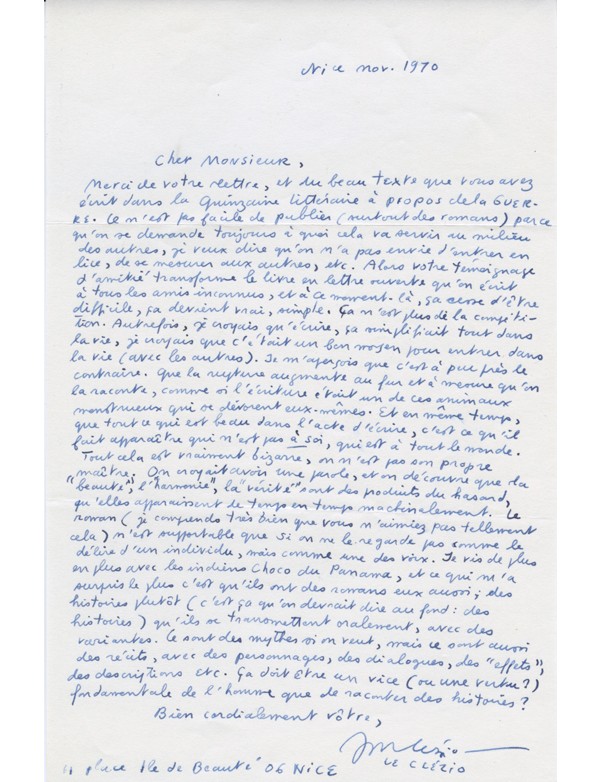 Nice nov. 1970
Cher Monsieur,
Merci de votre lettre, et du beau texte que vous avez
écrit dans la Quinzaine littéraire à PROPOS de la GUER-
RE. Ce n'est pas facile de publier (surtout des romans) parce
qu'on se demande toujours à quoi cela va servir au milieu
des autres, je veux dire qu'on n'a pas envie d'entrer en
lice, de se mesurer aux autres, etc. Alors votre témoignage
d'amitié transforme le livre en lettre ouverte qu'on écrit
à tous les amis inconnus, et à ce moment-là, ça cesse d'être
difficile, ça devient vrai, simple. Ça n'est plus de la compéti-
tion. Autrefois, je croyais qu'écrire, ça simplifiait tout dans
la vie, je croyais que c'était un bon moyen pour entrer dans
la vie (avec les autres). Je m'aperçois que c'est à peu près le
contraire. Que la rupture augmente au fur et à mesure qu'on
la raconte, comme si l'écriture était un de ces animaux
monstrueux qui se dévorent eux-mêmes. Et en même temps,
que tout ce qui est beau dans l'acte d'écrire, c'est ce qu'il
fait apparaître qui n'est pas à soi, qui est à tout le monde.
Tout cela est vraiment bizarre, on n'est pas son propre
maître. On croyait avoir une parole, et on découvre que la
"beauté", l'"harmonie", la "vérité" sont des produits du hasard,
qu'elles apparaissent de temps en temps machinalement. Le
roman (je comprends très bien que vous n'aimiez pas tellement
cela) n'est supportable que si on ne le regarde pas comme le
délire d'un individu, mais comme une des voix. Je vis de plus
en plus avec les indiens Choco du Panama, et ce qui m'a
surpris le plus c'est qu'ils ont des romans eux aussi; des
histoires plutôt (c'est ça qu'on devrait dire au fond: des
histoires) qu'ils se transmettent oralement, avec des
variantes. Ce sont des mythes si on veut, mais ce sont aussi
des récits, avec des personnages, des dialogues, des "effets",
des descriptions etc. Ça doit être un vice (ou une vertu?)
fondamentale de l'homme que de raconter des histoires?
Bien cordialement vôtre,
JM Le Clézio
LE CLÉZIO
place Ile de Beauté 06 NICE